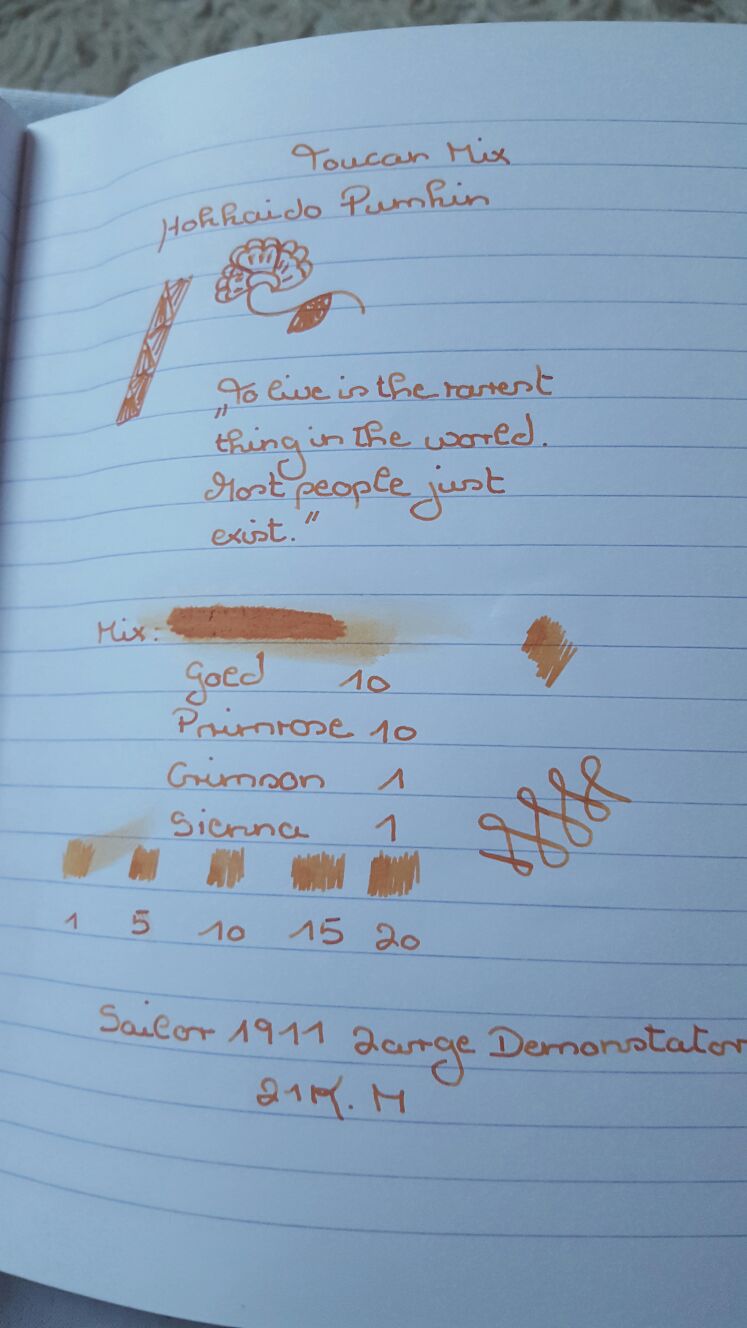 Toucan Mix
Hokkaido Pumkin
„To live is the rarest
thing in the world.
Most people just
exist."
Mix:
Gold 10
Primrose 10
Crimson 1
Sienna 1
1 5 10 15 20
Sailor 1911 Large Demonstator
21K. M